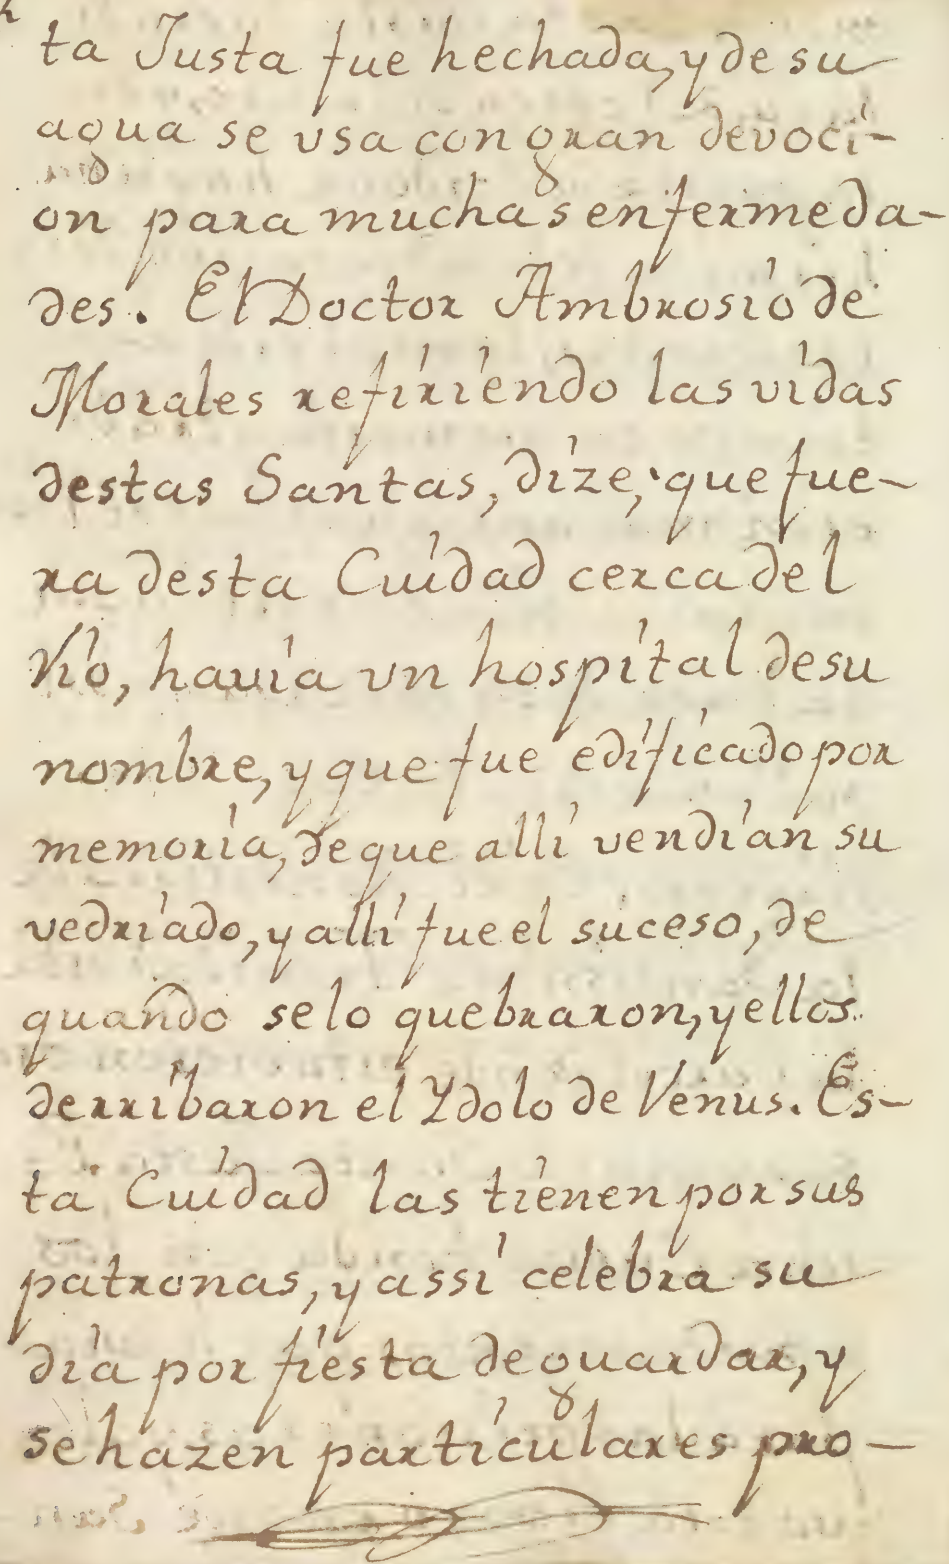 ta Justa fue hechada, y de su
agua se vsa con gran devoci-
on para muchas enfermeda-
des. El Doctor Ambrosio de
Morales refiriendo las vidas
destas Santas, dize, que fue-
ra desta Cuidad cerca del
Rio, havia vn hospital de su
nombre, y que fue edificado por
memoria, de que alli vendian su
vedriado, y alli fue el suceso, de
quando se lo quebraron, y ellos
derribaron el Ydolo de Venus. Es-
ta Cuidad las tienen por sus
patronas, y assi celebra su
dia por fiesta de guardar, y
se hazen particulares pro-